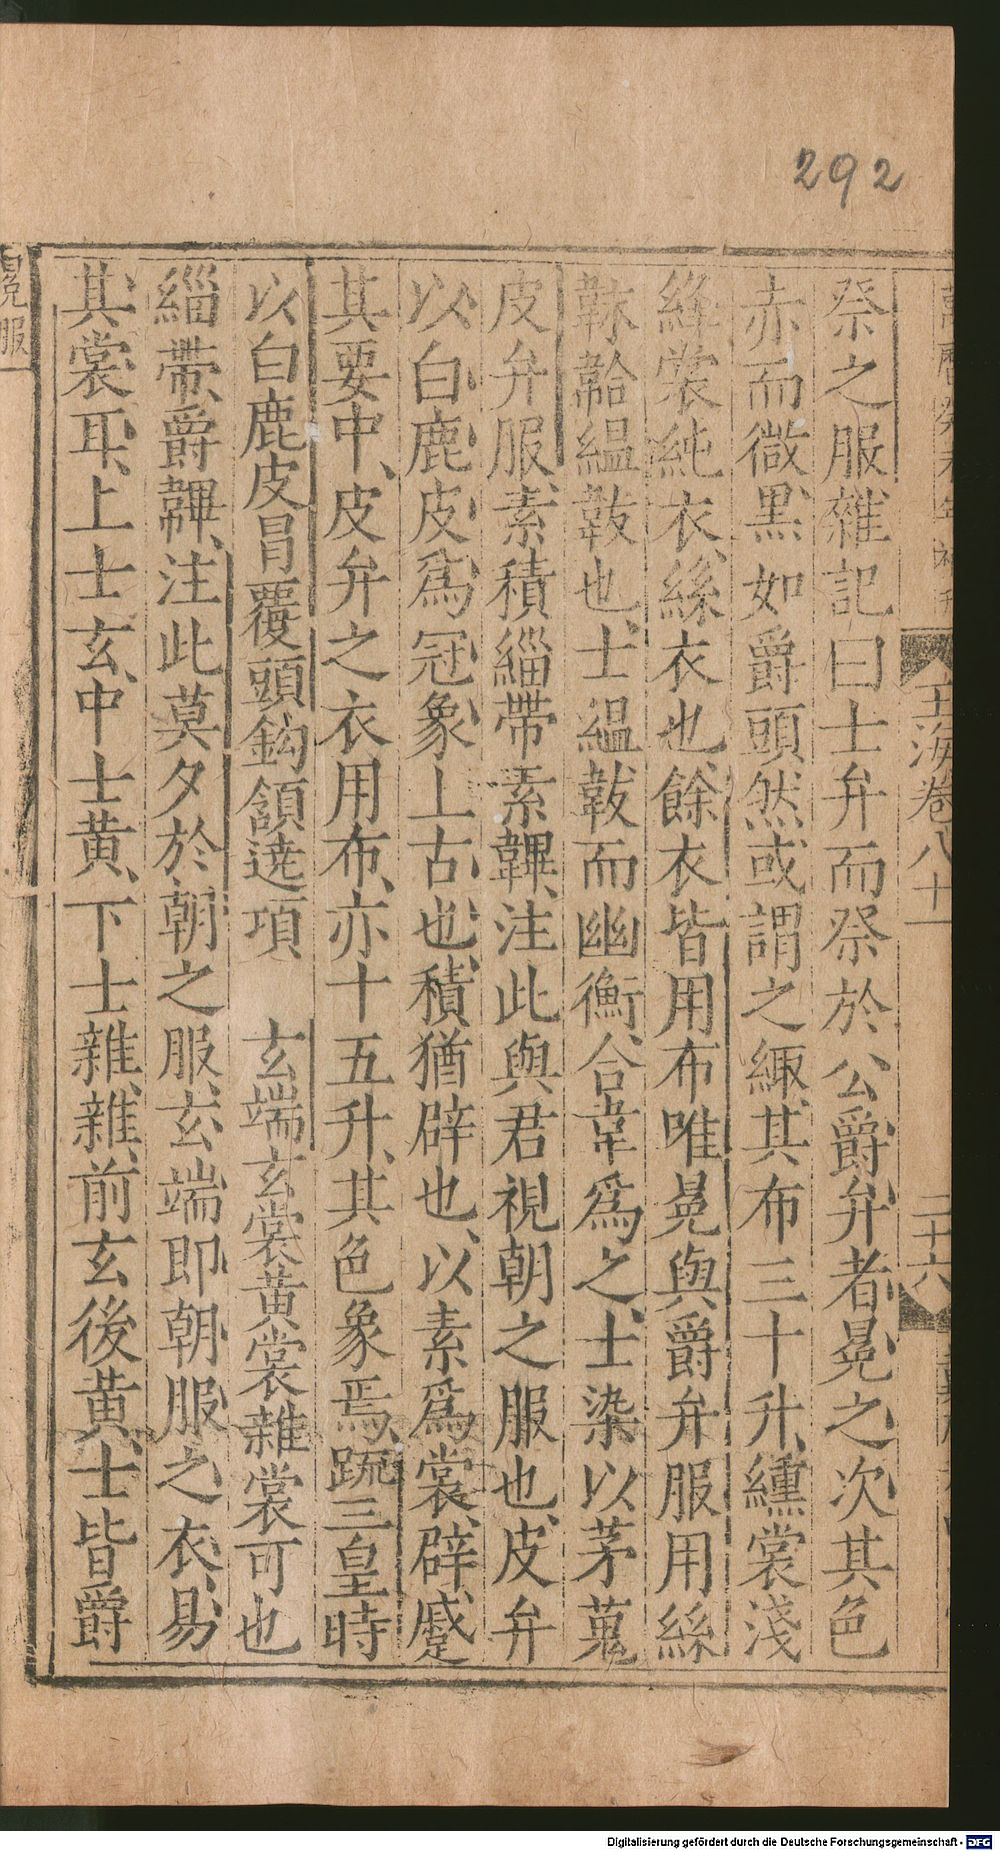 292
玉海卷八十一
二十六
祭之服雜記曰士弁而祭於公爵弁者冕之次其色
赤而微黑如爵頭然或謂之緅其布三十升纁裳淺
絳裳純衣絲衣也餘衣皆用布唯冕與爵弁服用絲
韎韐縕韍也士縕韍而幽衡合韋爲之士染以茅蒐
皮弁服素積緇帶素韠注此與君視朝之服也皮弁
以白鹿皮爲冠象上古也積猶辟也以素爲裳辟蹙
其要中皮弁之衣用布亦十五升其色象焉䟽三皇時
以白鹿皮冒覆頭鈎頷遶項 玄端玄裳黄裳雜裳可也
緇帶爵韠注此莫夕於朝之服玄端即朝服之衣易
其裳耳上士玄中士黄下士雜雜前玄後黄士皆爵
冕服
Digitalisierung gefördert durch die Deutsche Forschungsgemeinschaft - DFG